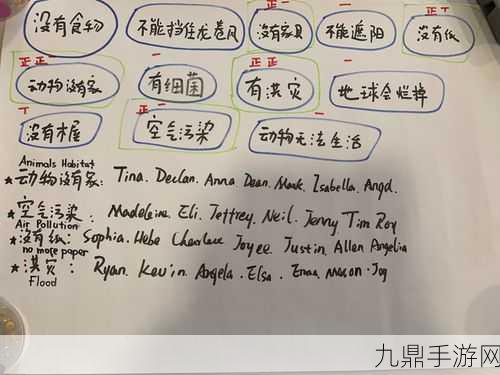 没有食物 不能挡住龙卷风 没有家具 不能遮阳 没有纸
动物没有家 有细菌 有洪灾 地球会烂掉
没有椎 空气污染 动物无法生活
Animals Habitat
★动物没有家: Tina. Declan. Anna Dean. Mark. Isabella. Angd.
★空气污染: Madeleine. Eli. Jeffrey. Neil. Jenny Tim Roy
Air Pollution
★没有纸: Sophia. Hebe Joyee. Justin. Allen Angelia
no more paper
★洪灾: Ryan. Kevin. Angela. Elsa. Emma. Mason. Joy
Flood
九鼎手游网